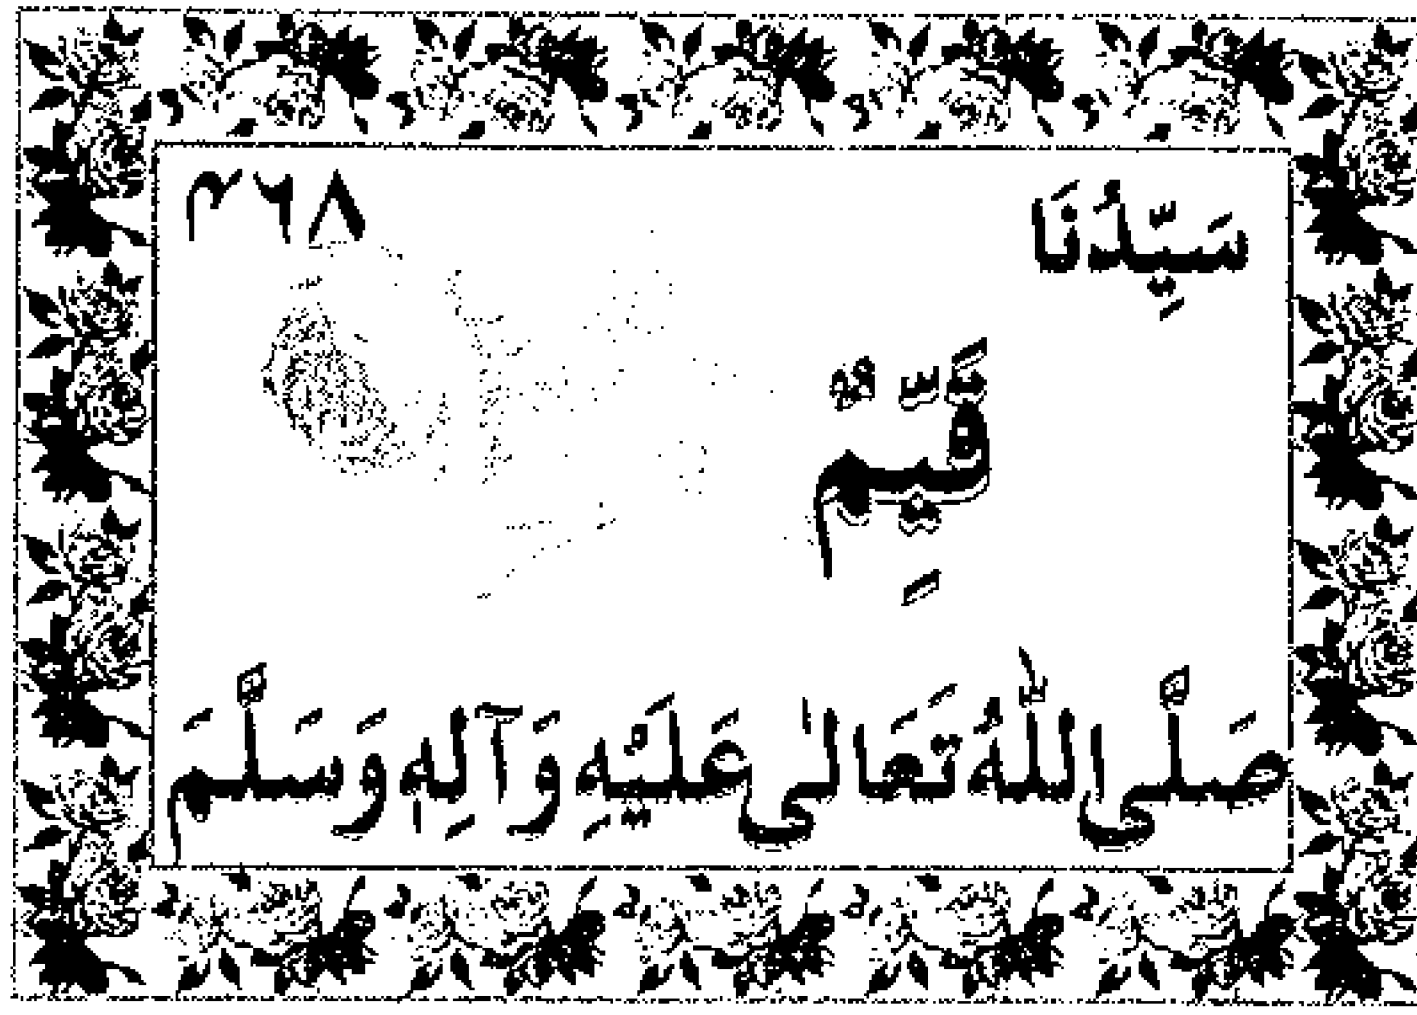 سَيِّدُنَا ٣٦٨
قَيِّمٌ
صَلَّى اللّٰهُ تَعَالٰى عَلَيْهِ وَآلِهٖ وَسَلَّمَ